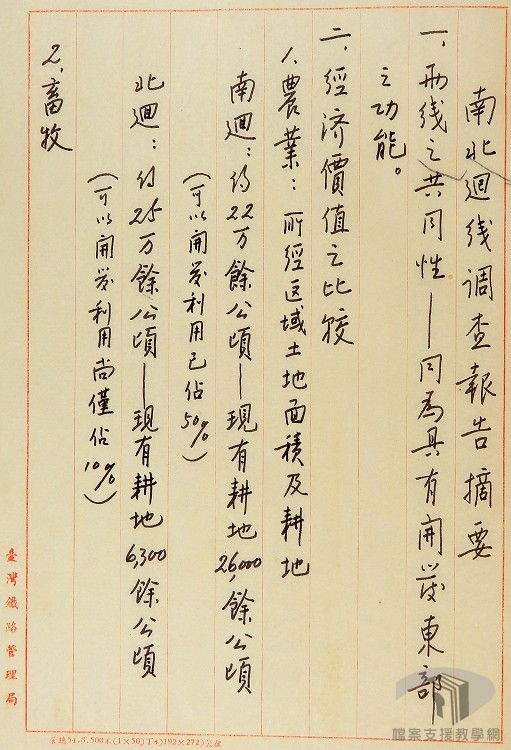 南北迴线調查報告摘要
一、兩线之共同性——同為具有開发東部
之功能。
二、經济價值之比較
1、農業：所經区域土地面積及耕地
南迴：约22万餘公頃——現有耕地26,000餘公頃
(可以開发利用已佔50%)
北迴：约25万餘公頃——現有耕地6,300餘公頃
(可以開发利用尚僅佔10%)
2、畜牧
臺灣鐵路管理局
檔案支援教學網